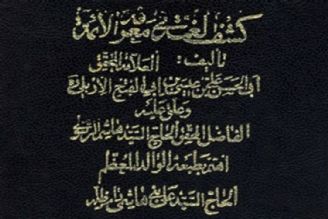 كشف الغمة في معرفة الأئمة
تأليف: العلامة المحقق
أبي الحسن علي بن عيسى بن أبي الفتح الإربلي
وعلق عليه
الفاضل المحقق الحاج السيد هاشم الرسولي
اهتم بطبعه الوالد المعظم
الحاج السيد علي بني هاشمي